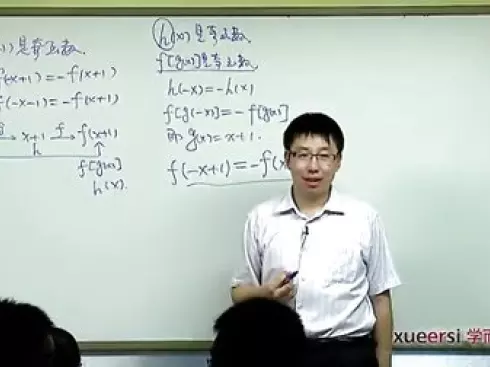 1)是奇函数.
f(-x+1)=-f(x+1)
f(-x-1)=-f(x+1)
g→ x+1 f→ f(x+1)
h ↑
f[g(x)]
h(x).
h(x) 是奇函数.
f[g(x)]是奇函数.
h(-x)=-h(x)
f[g(-x)]=-f[g(x)]
即 g(x)=x+1.
f(-x+1)=-f(x
xueersi 学而